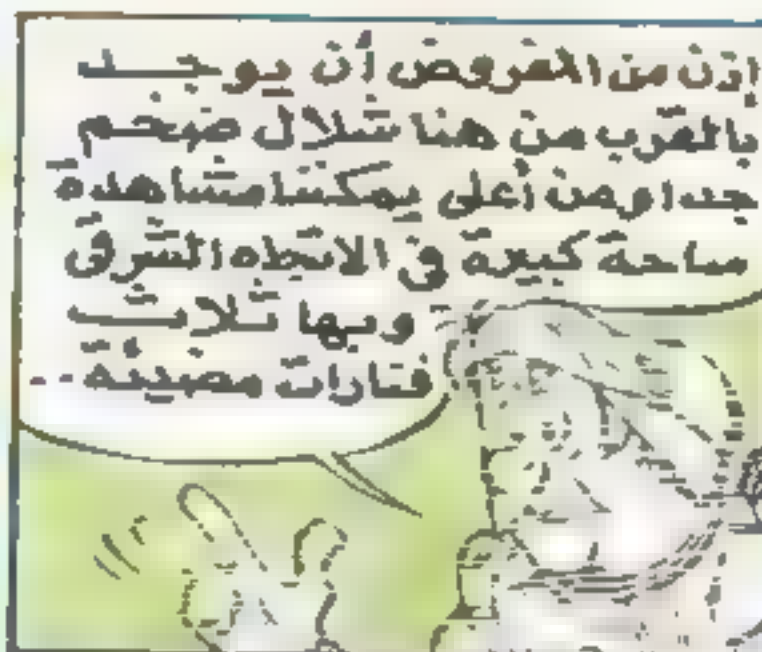 إذن من المفروض أن يوجد
بالقرب من هنا شلال ضخم
جدا ومن أعلى يمكننا مشاهدة
مساحة كبيرة فى الاتجاه الشرقى
وبها ثلاث
فنارات مضيئة..